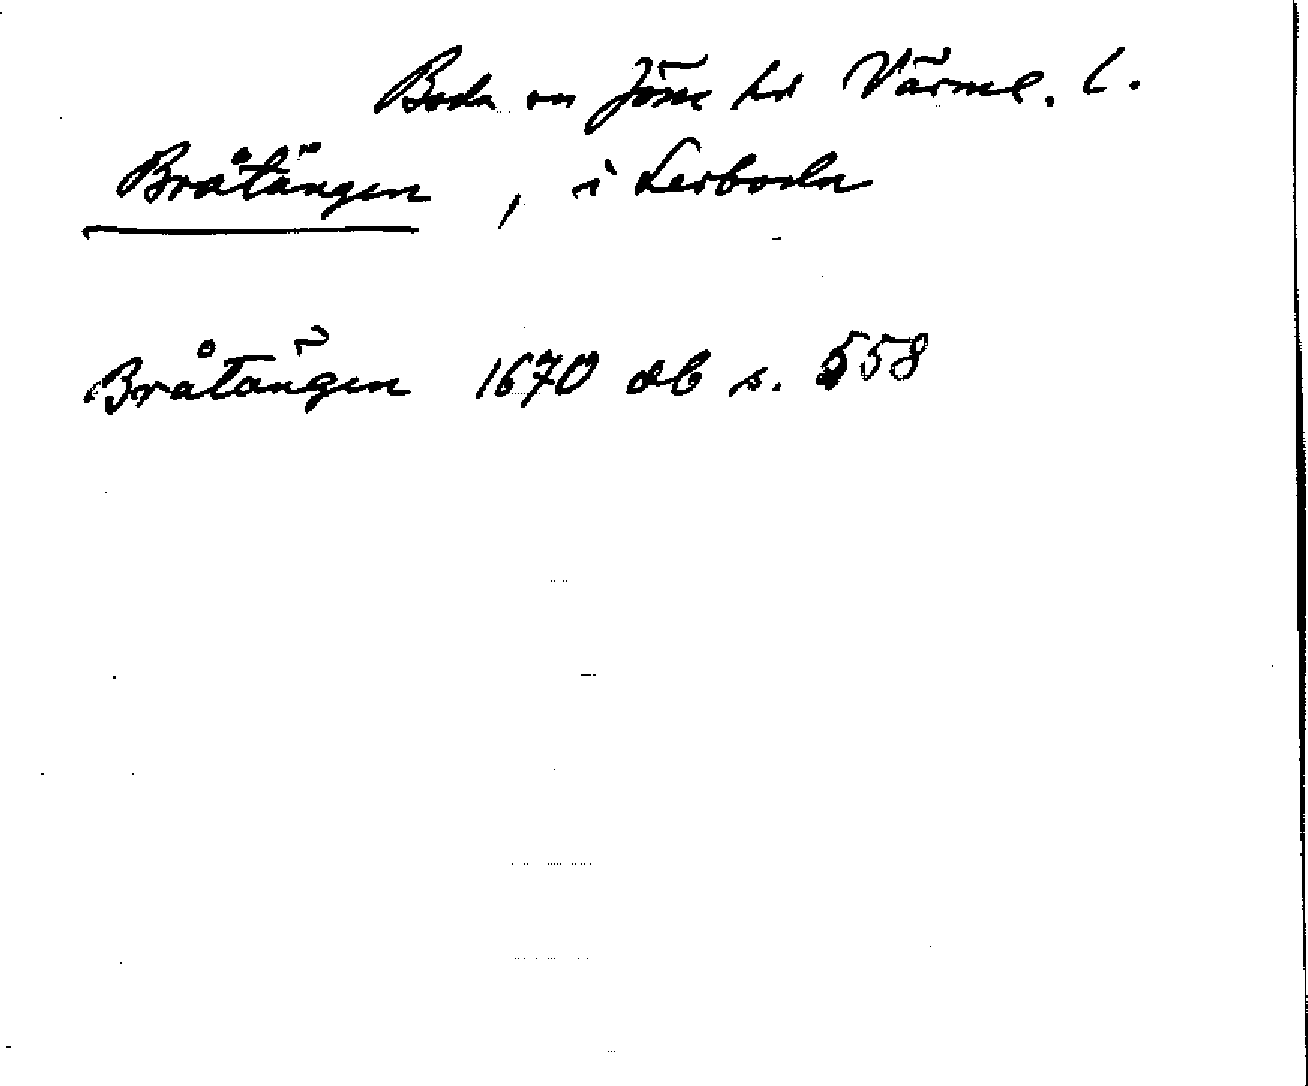 Boda sn Jöse hd Värml. l.
Bråtängen, i Lerboda
Bråtängen 1670 db s. 558